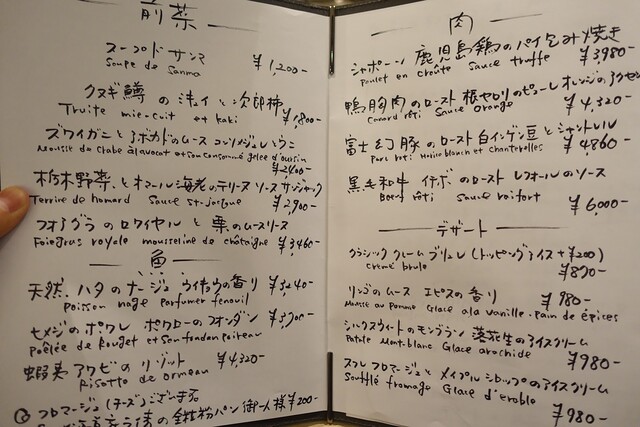 前菜
スープドサンマ
Soupe de Sanma
¥1,200-
クヌギ鱒の ミキュイと次郎柿
Truite mie-cuit et kaki
¥1,800-
ズワイガニとアボカドのムース コンソメジュレ うに
Mousse de Crabe à l'avocat et son consommé gelée d'oursin
¥2,400-
栃木野菜 とオマール海老のテリーヌ ソースサンジャック
Terrine de homard Sauce st-jacque
¥2,900-
フォアグラのロワイヤルと 栗のムースリーヌ
Foiegras royale mousseline de châtaigne
¥3,460-
魚
天然ハタのナージュ ウイキョウの香り ¥3,240-
Poisson nage parfumer fenouil
ヒメジのポワレ ポワローのフォンダン ¥3,700-
Poêlée de Rouget et son fondan poireau
蝦夷アワビのリゾット ¥4,320-
Risotto de ormeau
フロマージュ(チーズ)ございます。
の全粒粉パン 御一人様¥200-
肉
シャポーン鹿児島鶏のパイ包み焼き
Poulet en croûte Sauce truffe
¥3,980-
鴨胸肉のロースト 根セロリのピューレ オレンジのアクセ
Canard rôti Sauce Orange
¥4,320-
富士幻豚のロースト 白インゲン豆とシャントレル
Porc roti Haricoblanch et chanterelles
¥4,860-
黒毛和牛 イチボのロースト レフォールのソース
Bœuf rôti Sauce raifort
¥6,000-
デザート
クラシック クレームブリュレ (トッピングアイス+¥200)
creme brule
¥870-
リンゴのムース エピスの香り
¥980-
Mousse au pomme Glace à la vanille. Pain de épices
シルクスウィートのモンブラン 落花生のアイスクリーム
Patate Mont-blanc Glace arachide
¥980-
スフレフロマージュと メイプルシロップのアイスクリーム
Soufflé fromage Glace d'erable
¥980-